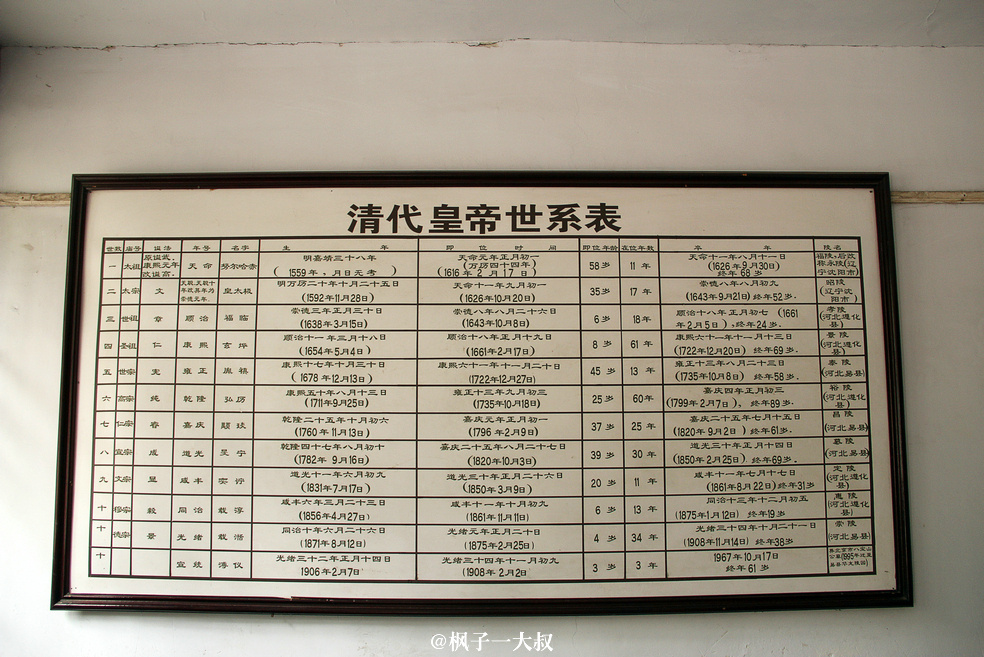 清代皇帝世系表
世数 庙号 谥法 年号 名字 生年 即位时间 即位年龄 在位年数 卒年 陵名
一 太祖 原谥武、康熙元年改谥高. 天命 努尔哈赤 明嘉靖三十八年 (1559年,月日无考) 天命元年正月初一 (万历四十四年) (1616年2月17日) 58岁 11年 天命十一年八月十一日 (1626年9月30日) 终年68岁 福陵,后改称永陵(辽宁沈阳市)
二 太宗 文 天聪,天聪十年改其年为崇德元年. 皇太极 明万历二十年十月二十五日 (1592年11月28日) 天命十一年九月初一 (1626年10月20日) 35岁 17年 崇德八年八月初九 (1643年9月21日)终年52岁. 昭陵 (辽宁沈阳市)
三 世祖 章 顺治 福临 崇德三年正月三十日 (1638年3月15日) 崇德八年八月二十六日 (1643年10月8日) 6岁 18年 顺治十八年正月初七 (1661年2月5日),终年24岁. 孝陵 (河北遵化县)
四 圣祖 仁 康熙 玄烨 顺治十一年三月十八日 (1654年5月4日) 顺治十八年正月十九日 (1661年2月17日) 8岁 61年 康熙六十一年十一月十三日 (1722年12月20日) 终年69岁. 景陵 (河北遵化县)
五 世宗 宪 雍正 胤禛 康熙十七年十月三十日 (1678年12月13日) 康熙六十一年十一月二十日 (1722年12月27日) 45岁 13年 雍正十三年八月二十三日 (1735年10月8日) 终年58岁. 泰陵 (河北易县)
六 高宗 纯 乾隆 弘历 康熙五十年八月十三日 (1711年9月25日) 雍正十三年九月初三 (1735年10月18日) 25岁 60年 嘉庆四年正月初三 (1799年2月7日),终年89岁. 裕陵 (河北遵化县)
七 仁宗 睿 嘉庆 颙琰 乾隆二十五年十月初六 (1760年11月13日) 嘉庆元年正月初一 (1796年2月9日) 37岁 25年 嘉庆二十五年七月十五日 (1820年9月2日) 终年61岁. 昌陵 (河北易县)
八 宣宗 成 道光 旻宁 乾隆四十七年八月初十 (1782年9月16日) 嘉庆二十五年八月二十七日 (1820年10月3日) 39岁 30年 道光三十年正月十四日 (1850年2月25日) 终年69岁. 慕陵 (河北易县)
九 文宗 显 咸丰 奕詝 道光十一年六月初九 (1831年7月17日) 道光三十年正月二十六日 (1850年3月9日) 20岁 11年 咸丰十一年七月十七日 (1861年8月22日)终年31岁 定陵 (河北遵化县)
十 穆宗 毅 同治 载淳 咸丰六年三月二十三日 (1856年4月27日) 咸丰十一年十月初九 (1861年11月11日) 6岁 13年 同治十三年十二月初五 (1875年1月12日) 终年19岁 惠陵 (河北遵化县)
十一 德宗 景 光绪 载湉 同治十年六月二十八日 (1871年8月12日) 光绪元年正月二十日 (1875年2月25日) 4岁 34年 光绪三十四年十月二十一日 (1908年11月14日) 终年38岁 崇陵 (河北易县)
十 宣统 溥仪 光绪三十二年正月十四日 1906年2月7日 光绪三十四年十一月初九 (1908年2月2日 3岁 3年 1967年10月17日 终年61岁
@枫子一大叔